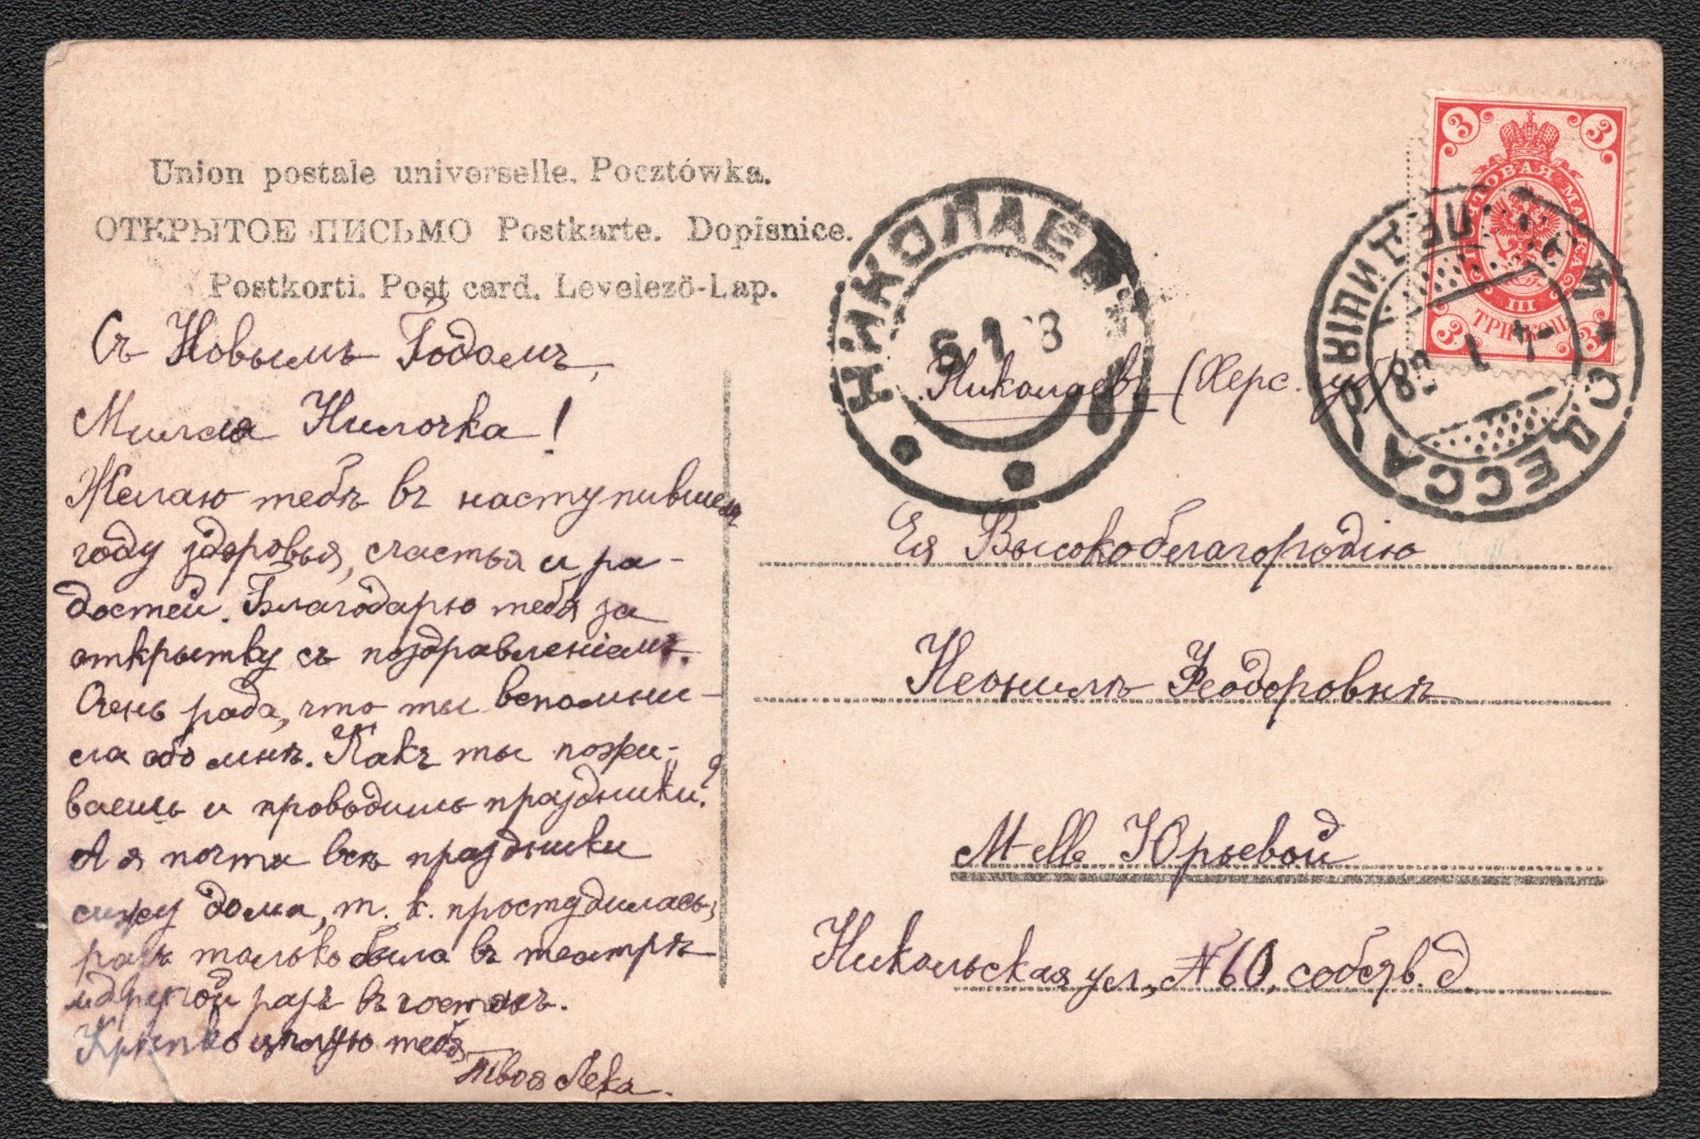 Union postale universelle. Pocztówka.
ОТКРЫТОЕ ПИСЬМО Postkarte. Dopisnice.
Postkorti. Post card. Levelező-Lap.
Съ Новымъ Годомъ,
Милая Нилочка!
Желаю тебѣ въ наступившем
году здоровья, счастья и ра-
достей. Благодарю тебя за
открытку съ поздравленіемъ.
Очень рада, что ты вспомни-
ла обо мнѣ. Какъ ты пожи-
ваешь и проводишь праздники?
А я почти всѣ праздники
сижу дома, т. к. простудилась,
разъ только была въ театрѣ
и другой разъ въ гостяхъ.
Крѣпко цѣлую тебя
Твоя Лека.
НИКОЛАЕВ
6 1 08
ОДЕССА
4 1 08
3 3
ПОЧТОВАЯ МАРКА
III
ТРИ КОП.
3 3
Николаевъ (Херс. губ)
Ея Высокоблагородію
Неонилѣ Ѳеодоровнѣ
M-elle Юрьевой
Никольская ул., № 60, собств. д.